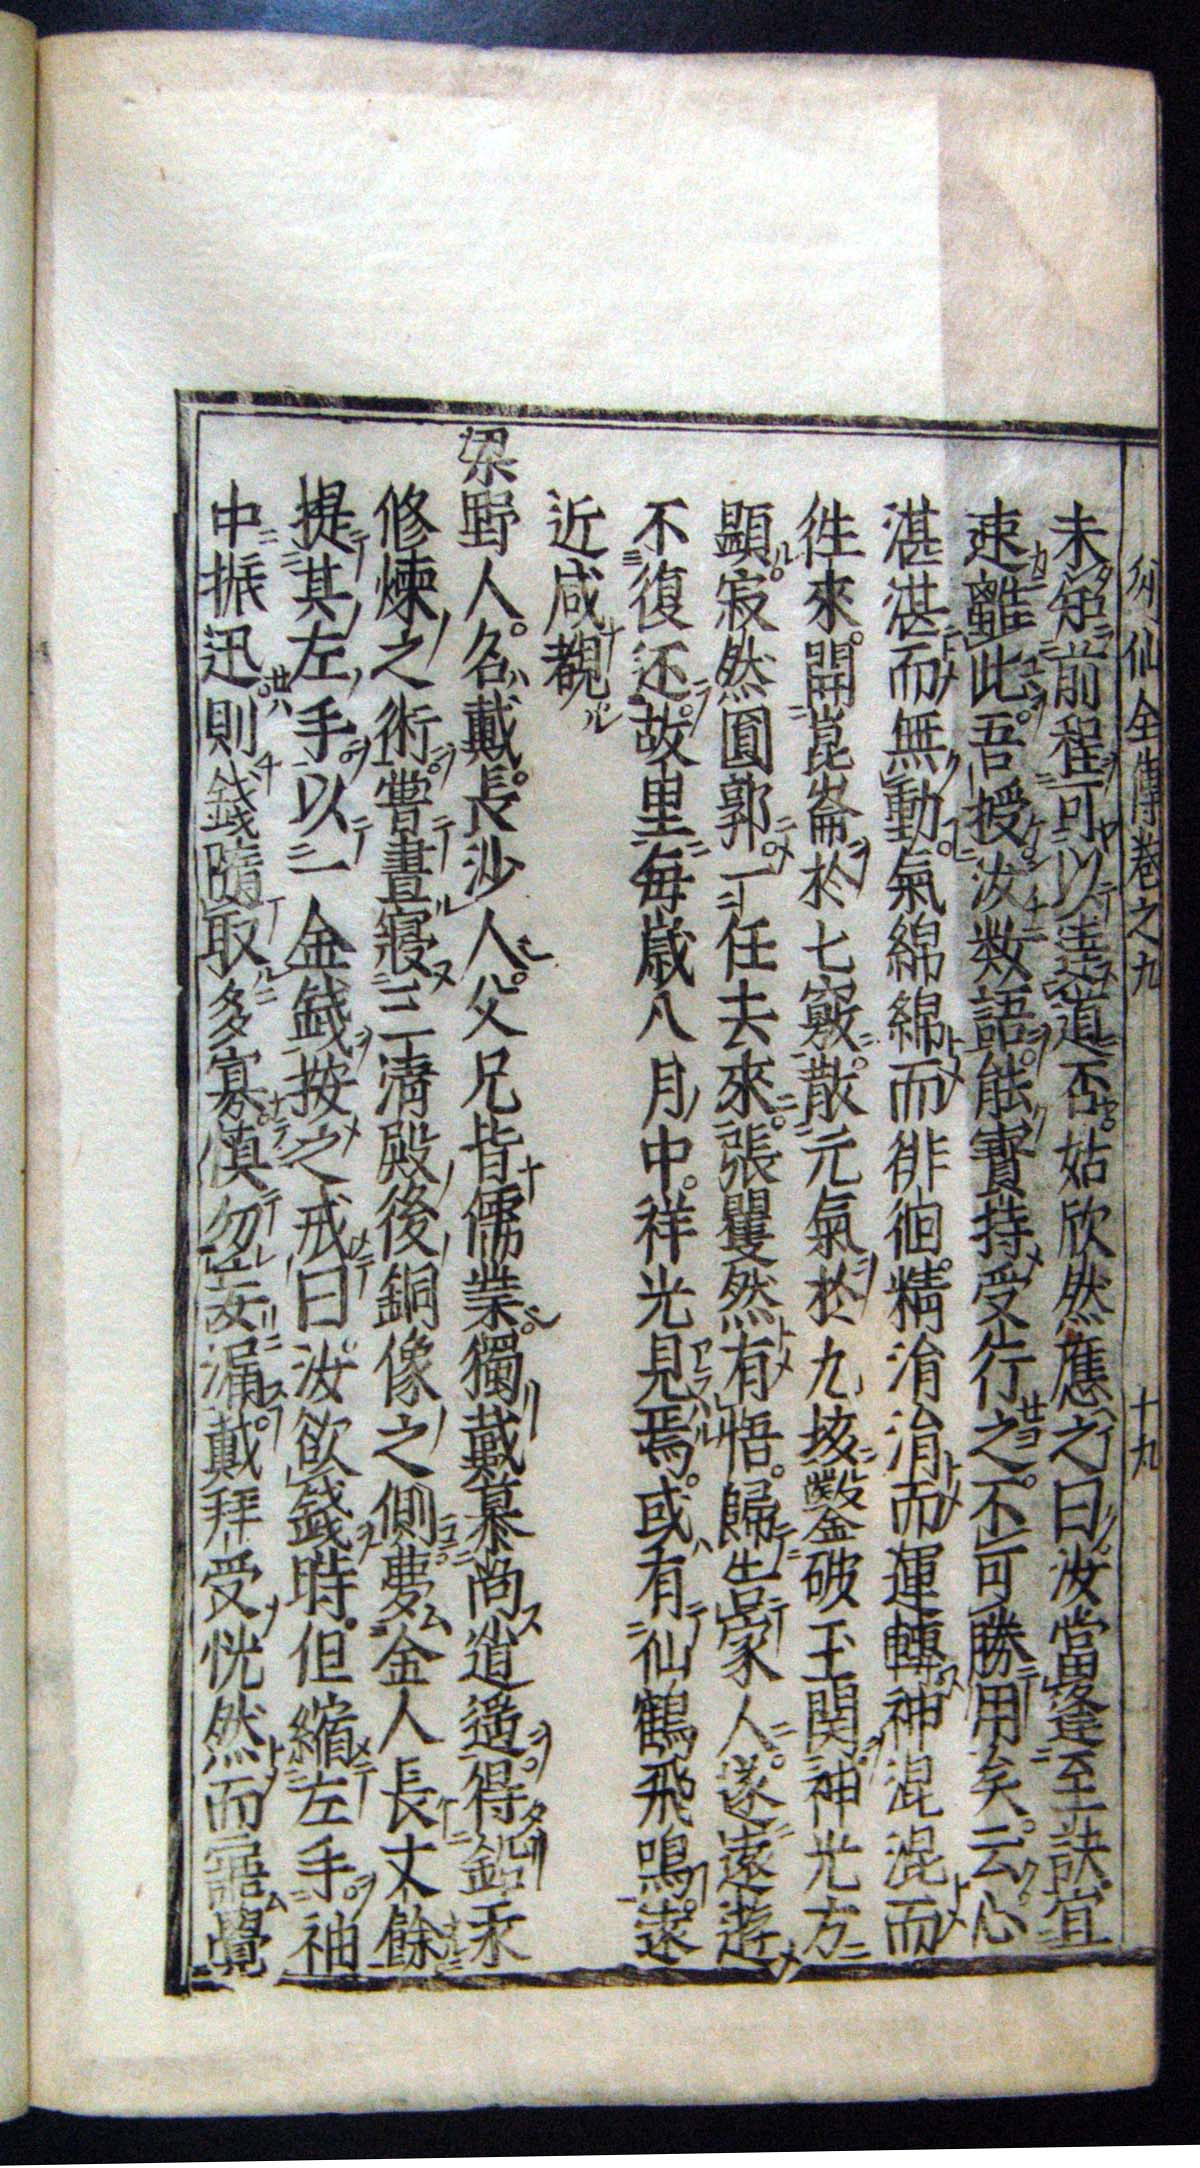 列仙全傳卷之九 十九
未知前程可以達道否姑欣然應之曰汝當逢至訣宜
速離此吾授汝数語能寳持受行之不可勝用矣云心
湛湛而無動氣綿綿而徘徊精涓涓而運轉神混混而
徃來開崑崙於七竅散元氣於九垓鑿破玉関神光方
顯寂然圓郭一任去來張矍然有悟歸告家人遂遠遊
不復还故里每歳八月中祥光見焉或有仙鶴飛鳴遠
近咸覩
梁野人名戴長沙人父兄皆儒業獨戴慕尚逍遥得鉛汞
修煉之術嘗晝寢三清殿後銅像之側夢金人長丈餘
提其左手以一金錢按之戒曰汝欲錢時但縮左手袖
中振迅則錢隨取多寡慎勿妄漏戴拜受恍然而寤覺